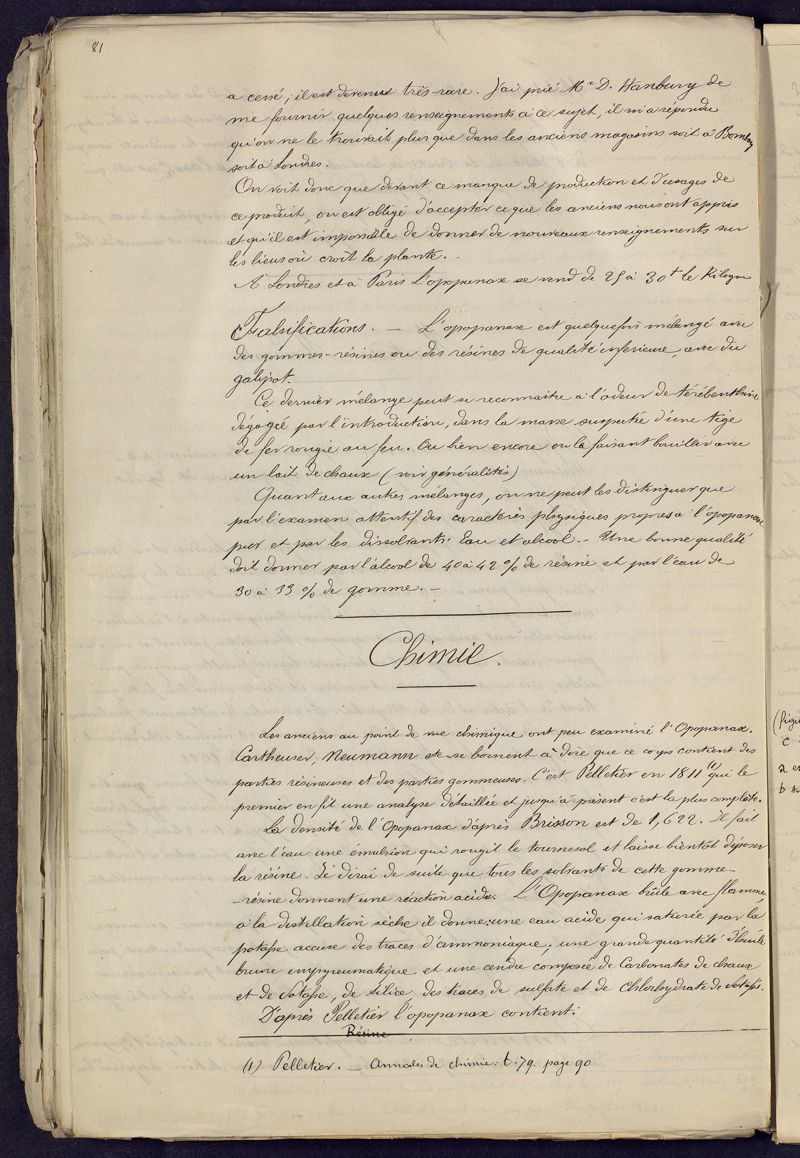 81
a cessé, il est devenu très-rare. J'ai prié Mr D. Hanbury de
me fournir quelques renseignements à ce sujet, il m'a répondu
qu'on ne le trouvait plus que dans les anciens magasins soit à Bombay
soit à Londres.
On voit donc que devant ce manque de production et d'usages de
ce produit, on est obligé d'accepter ce que les anciens nous ont appris
et qu'il est impossible de donner de nouveaux renseignements sur
les lieux où croît la plante.
A Londres et à Paris l'opopanax se vend de 25 à 30f le Kilogr
Falsifications. — L'opopanax est quelquefois mélangé avec
des gommes-résines ou des résines de qualité inférieure, avec du
galipot.
Ce dernier mélange peut se reconnaitre à l'odeur de térébenthine
dégagée par l'introduction, dans la masse suspectée d'une tige
de fer rougie au feu. Ou bien encore en la faisant bouillir avec
un lait de chaux (voir généralités)
Quant aux autres mélanges, on ne peut les distinguer que
par l'examen attentif des caractères physiques propres à l'opopanax
pur et par les dissolvants: Eau et alcool. — Une bonne qualité
doit donner par l'alcool de 40 à 42 % de résine et par l'eau de
30 à 33 % de gomme. —
Chimie.
Les anciens au point de vue chimique ont peu examiné l'Opopanax.
Cartheuser, Neumann etc se bornent à dire que ce corps contient des
parties résineuses et des parties gommeuses. C'est Pelletier en 1811 (1) qui le
premier en fit une analyse détaillée et jusqu'à présent c'est la plus complète.
La densité de l'Opopanax d'après Brisson est de 1,622. Il fait
avec l'eau une émulsion qui rougit le tournesol et laisse bientôt déposer
la résine. Je dirai de suite que tous les solvants de cette gomme-
-résine donnent une réaction acide. L'Opopanax brûle avec flamme,
à la distillation sèche il donne: une eau acide qui saturée par la
potasse accuse des traces d'ammoniaque; une grande quantité d'huile
brune empyreumatique et une cendre composée de Carbonates de chaux
et de Potasse, de silice, des traces de sulfate et de Chlorhydrate de Potasse.
D'après Pelletier l'opopanax contient:
Résine
(1) Pelletier. — Annales de chimie. t. 79. page 90
(figu
c
a e
b